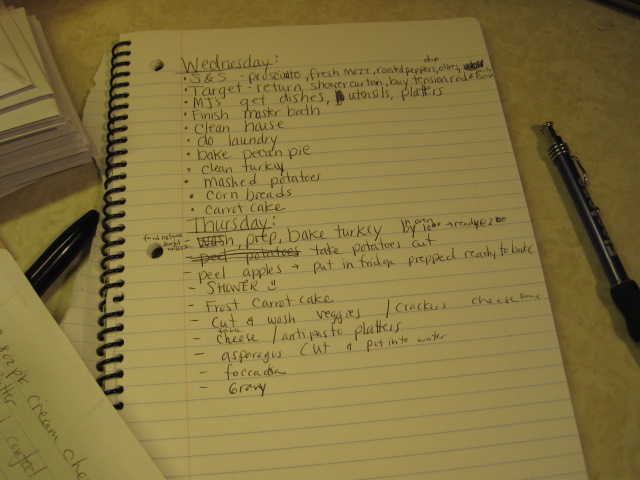 Wednesday:
· S&S - proscuitto, fresh mozz, roasted peppers, olives, dip
· Target: return, shower curtain, buy tension rod &
· MJs get dishes, utensils, platters
· Finish master bath
· clean house
· do laundry
· bake pecan pie
· clean turkey
· mashed potatoes
· corn breads
· carrot cake
Thursday:
- Wash, prep, bake turkey in oven by 10 → ready @ 2
food network
- peel potatoes take potatoes out
- peel apples → put in fridge prepped ready to bake
- SHOWER
- Frost Carrot cake
- Cut & wash veggies / crackers cheese
- cheese / antipasto platters
- asparagus cut & put into water
- foccacia
- Gravy
8oz pk cream che